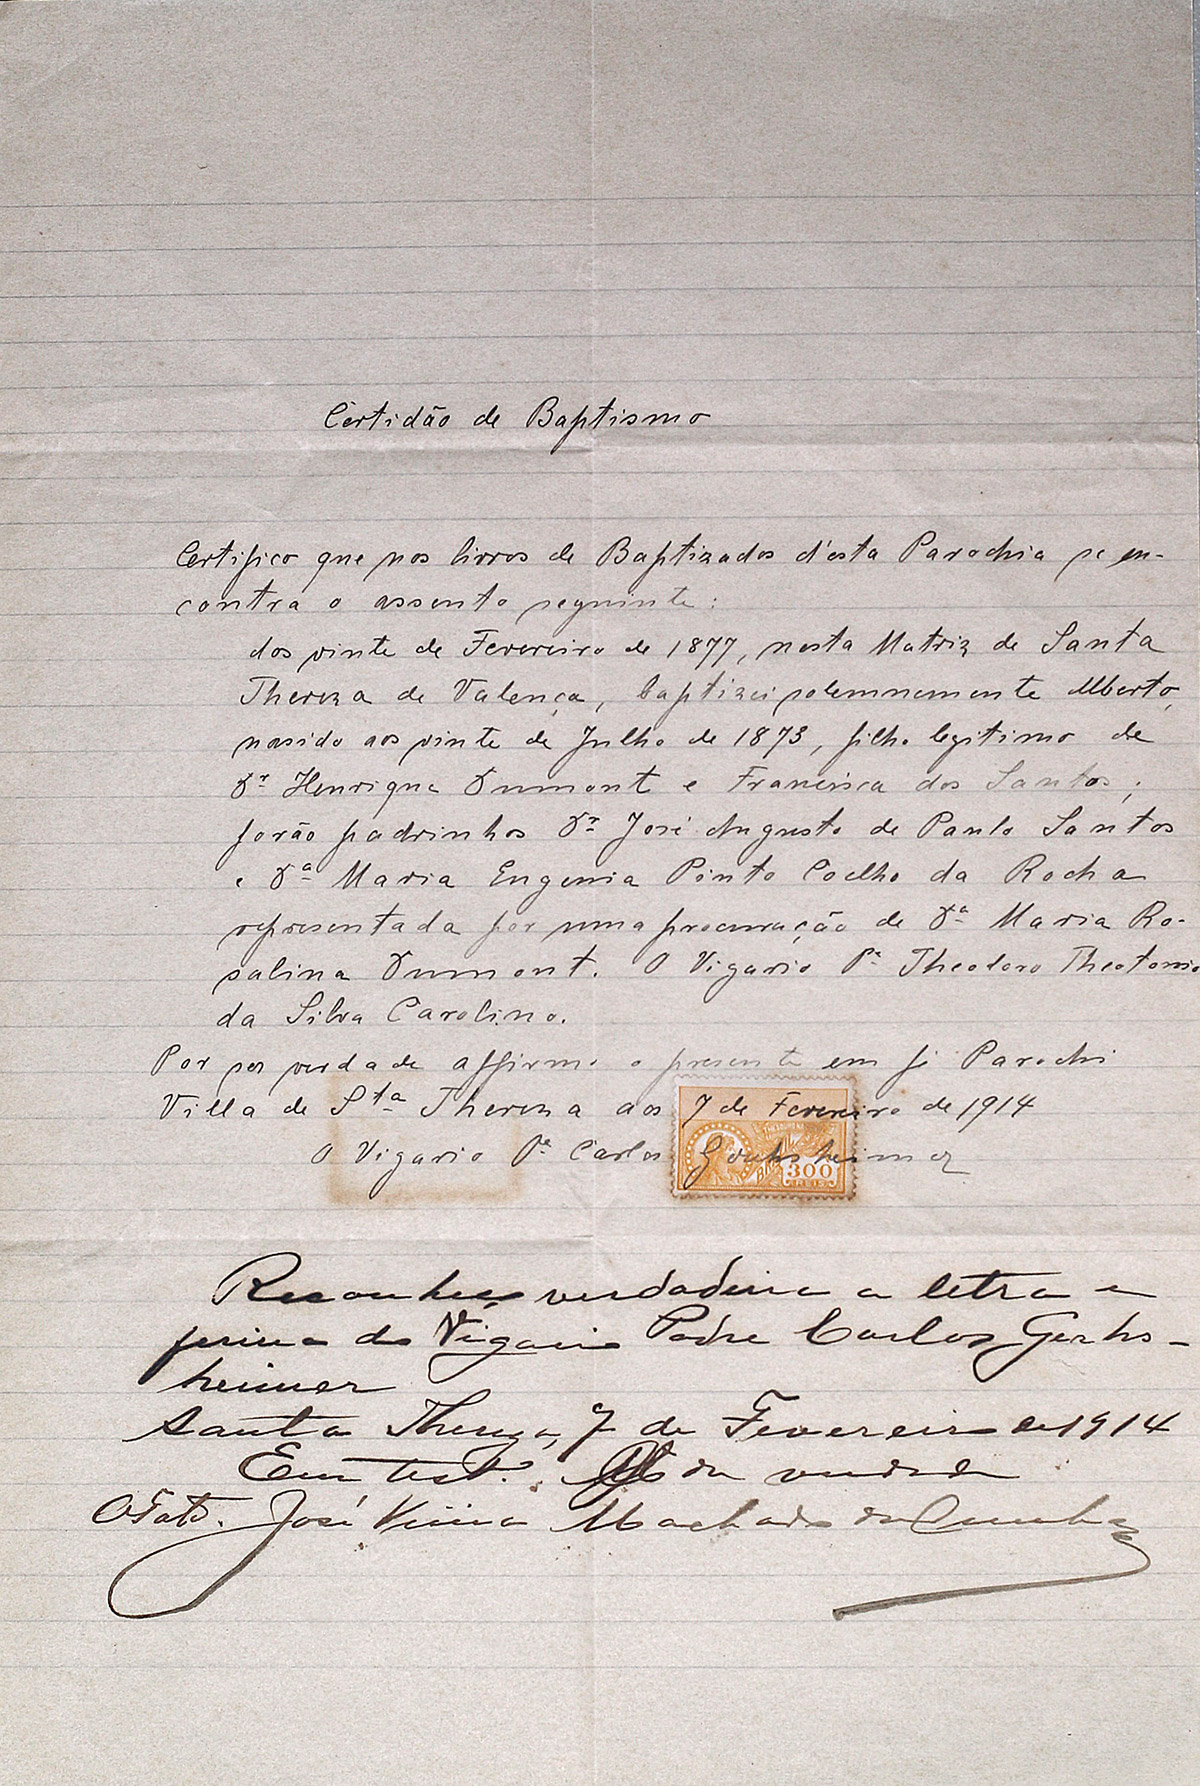 Certidão de Baptismo
Certifico que nos livros de Baptizados d'esta Parochia se en-
contra o assento seguinte:
dos vinte de Fevereiro de 1877, nesta Matriz de Santa
Thereza de Valença, baptizei solemnemente Alberto,
nasido aos vinte de Julho de 1873, filho legitimo de
Dr Henrique Dumont e Francisca dos Santos;
forão padrinhos Dr José Augusto de Paulo Santos
e Da Maria Eugenia Pinto Coelho da Rocha
representada por uma procuração de Da Maria Ro-
salina Dumont. O Vigario Pe Theodoro Theotonio
da Silva Carolino.
Por ser verdade affirmo o presente em fé Parochi
Villa de Sta Thereza aos 7 de Fevereiro de 1914
O Vigario Pe Carlos
300
REIS
Reconheço verdadeira a letra e
firma do Vigario Padre Carlos Gerhs-
heimer
Santa Thereza, 7 de Fevereiro de 1914
Em test. da verdade
José Vieira Machado da Cunha